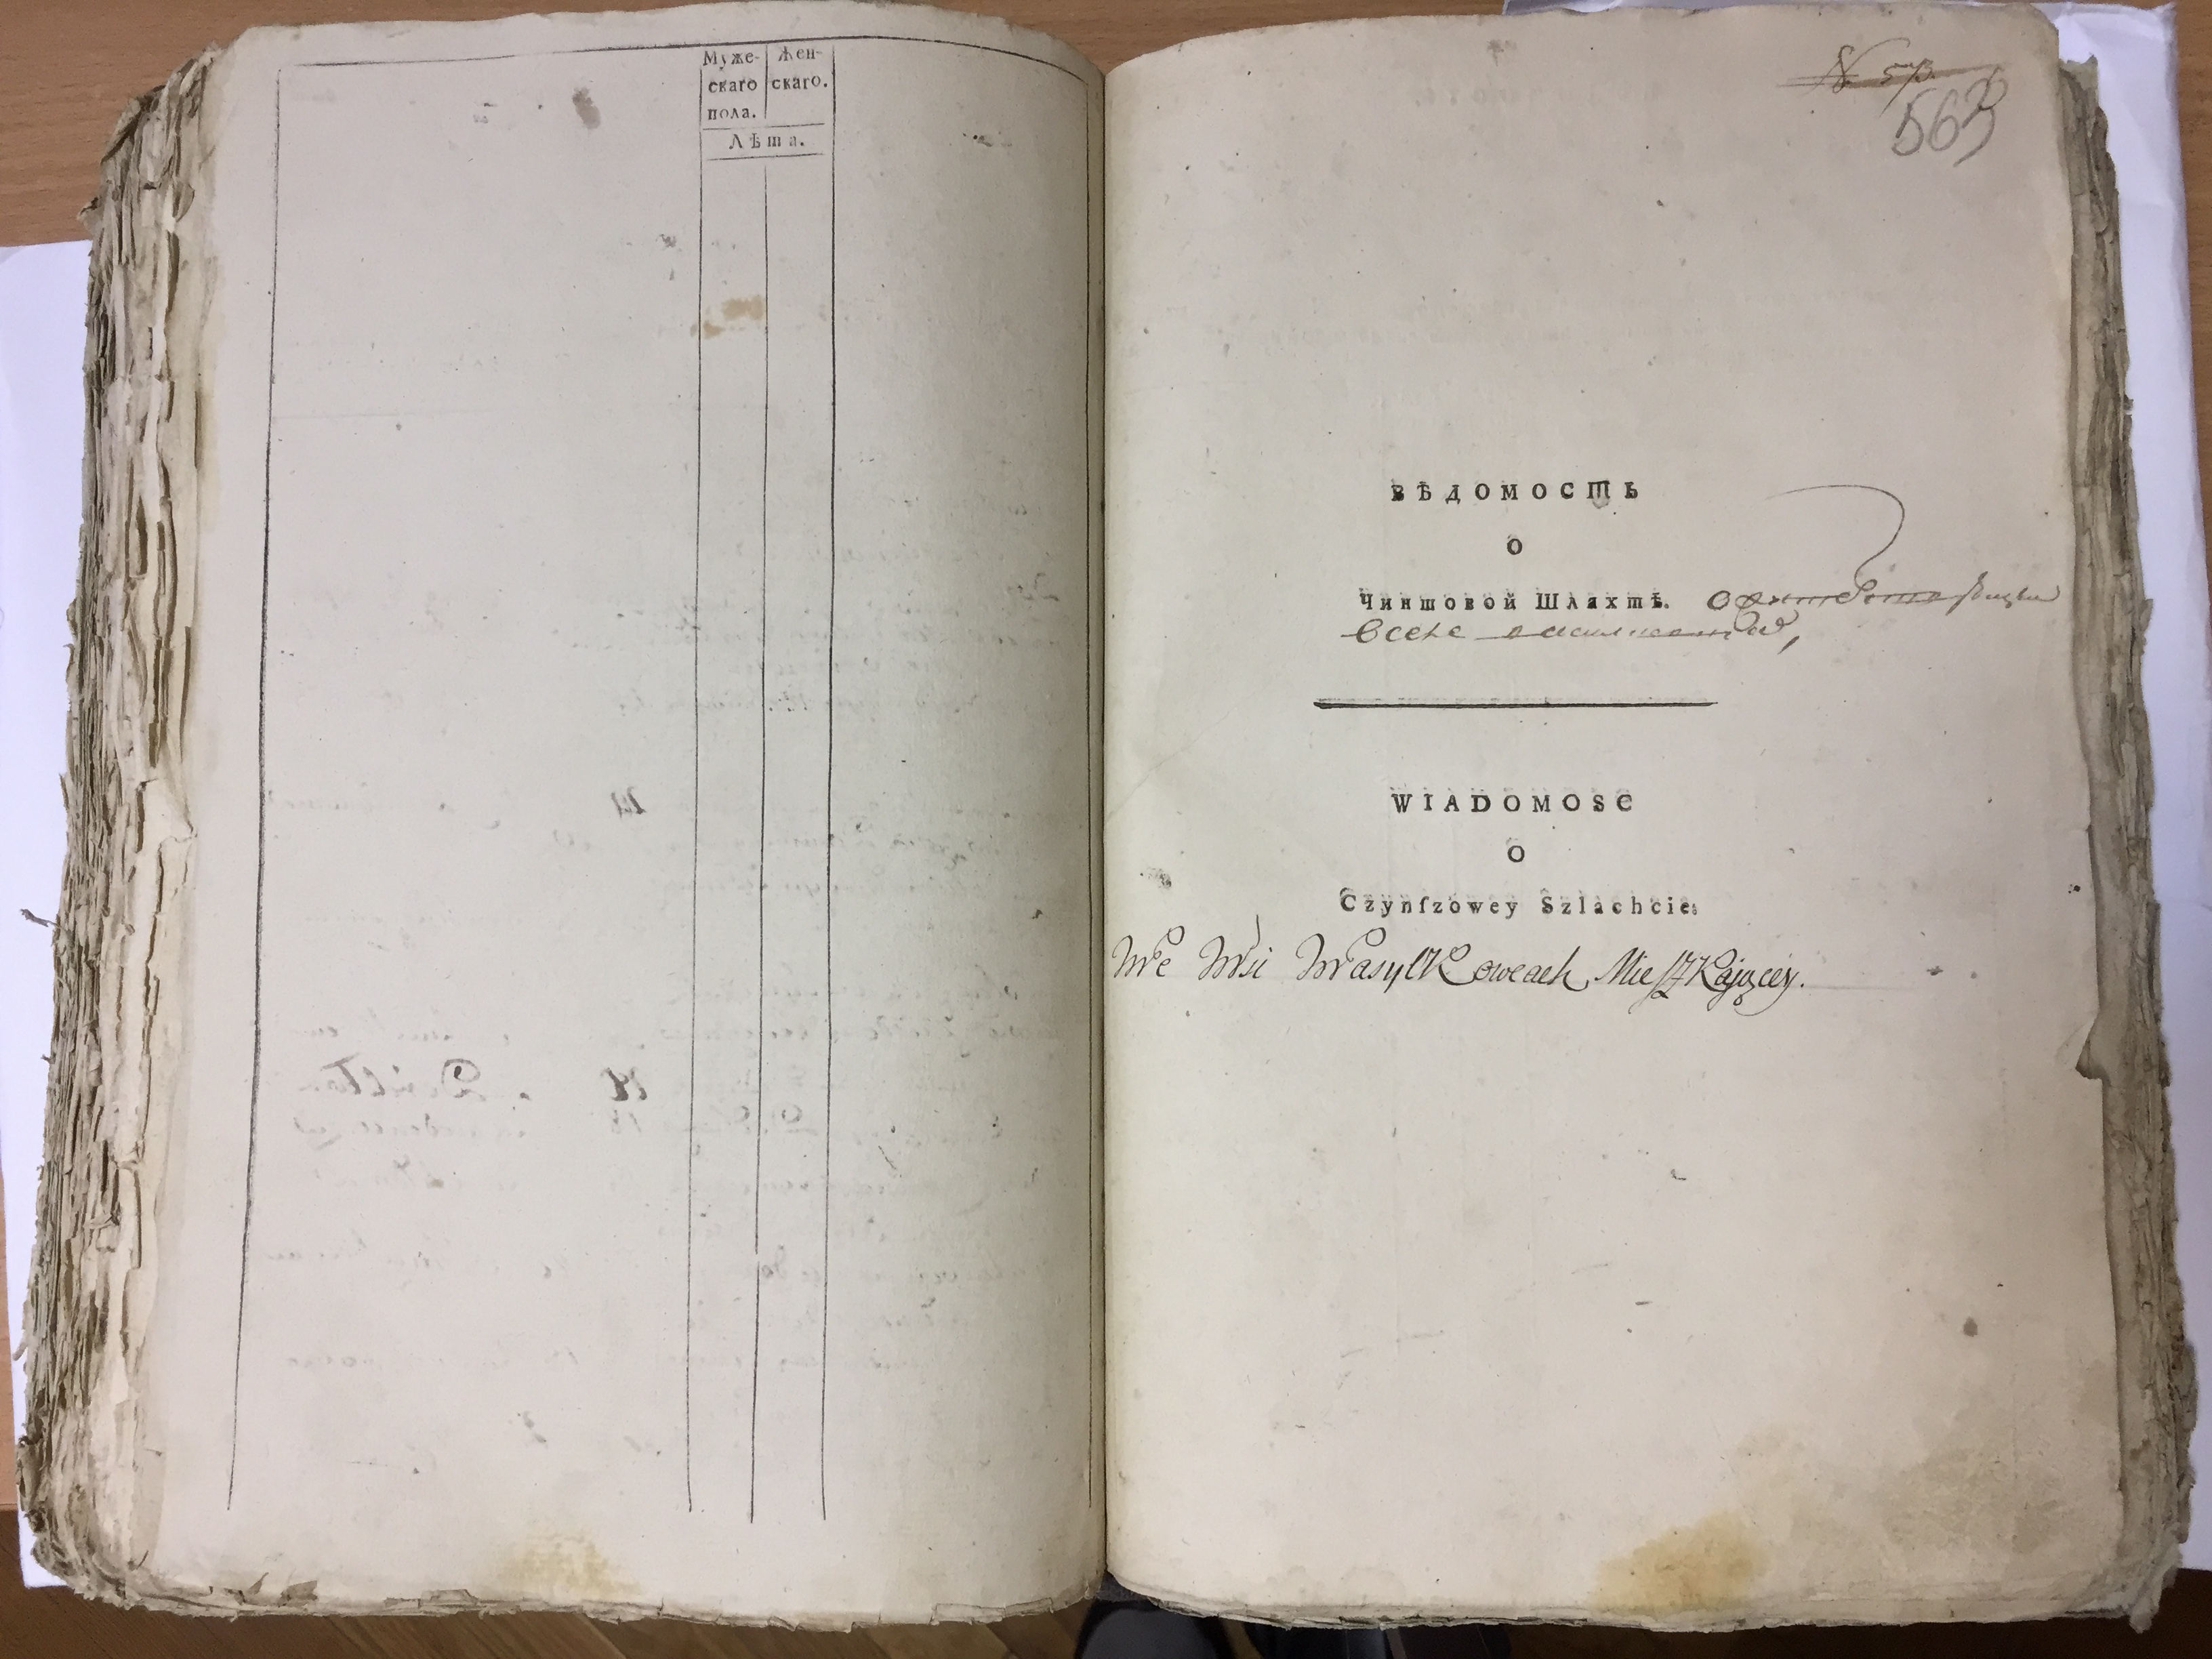 Муже-
скаго
пола.
Жен-
скаго.
Лѣта.
563
ВѢДОМОСТЬ
О
Чиншовой Шляхтѣ.
WIADOMOSC
O
Czynſzowey Szlachcie.
We Wsi Wasylkowcach Mieſzkającey.